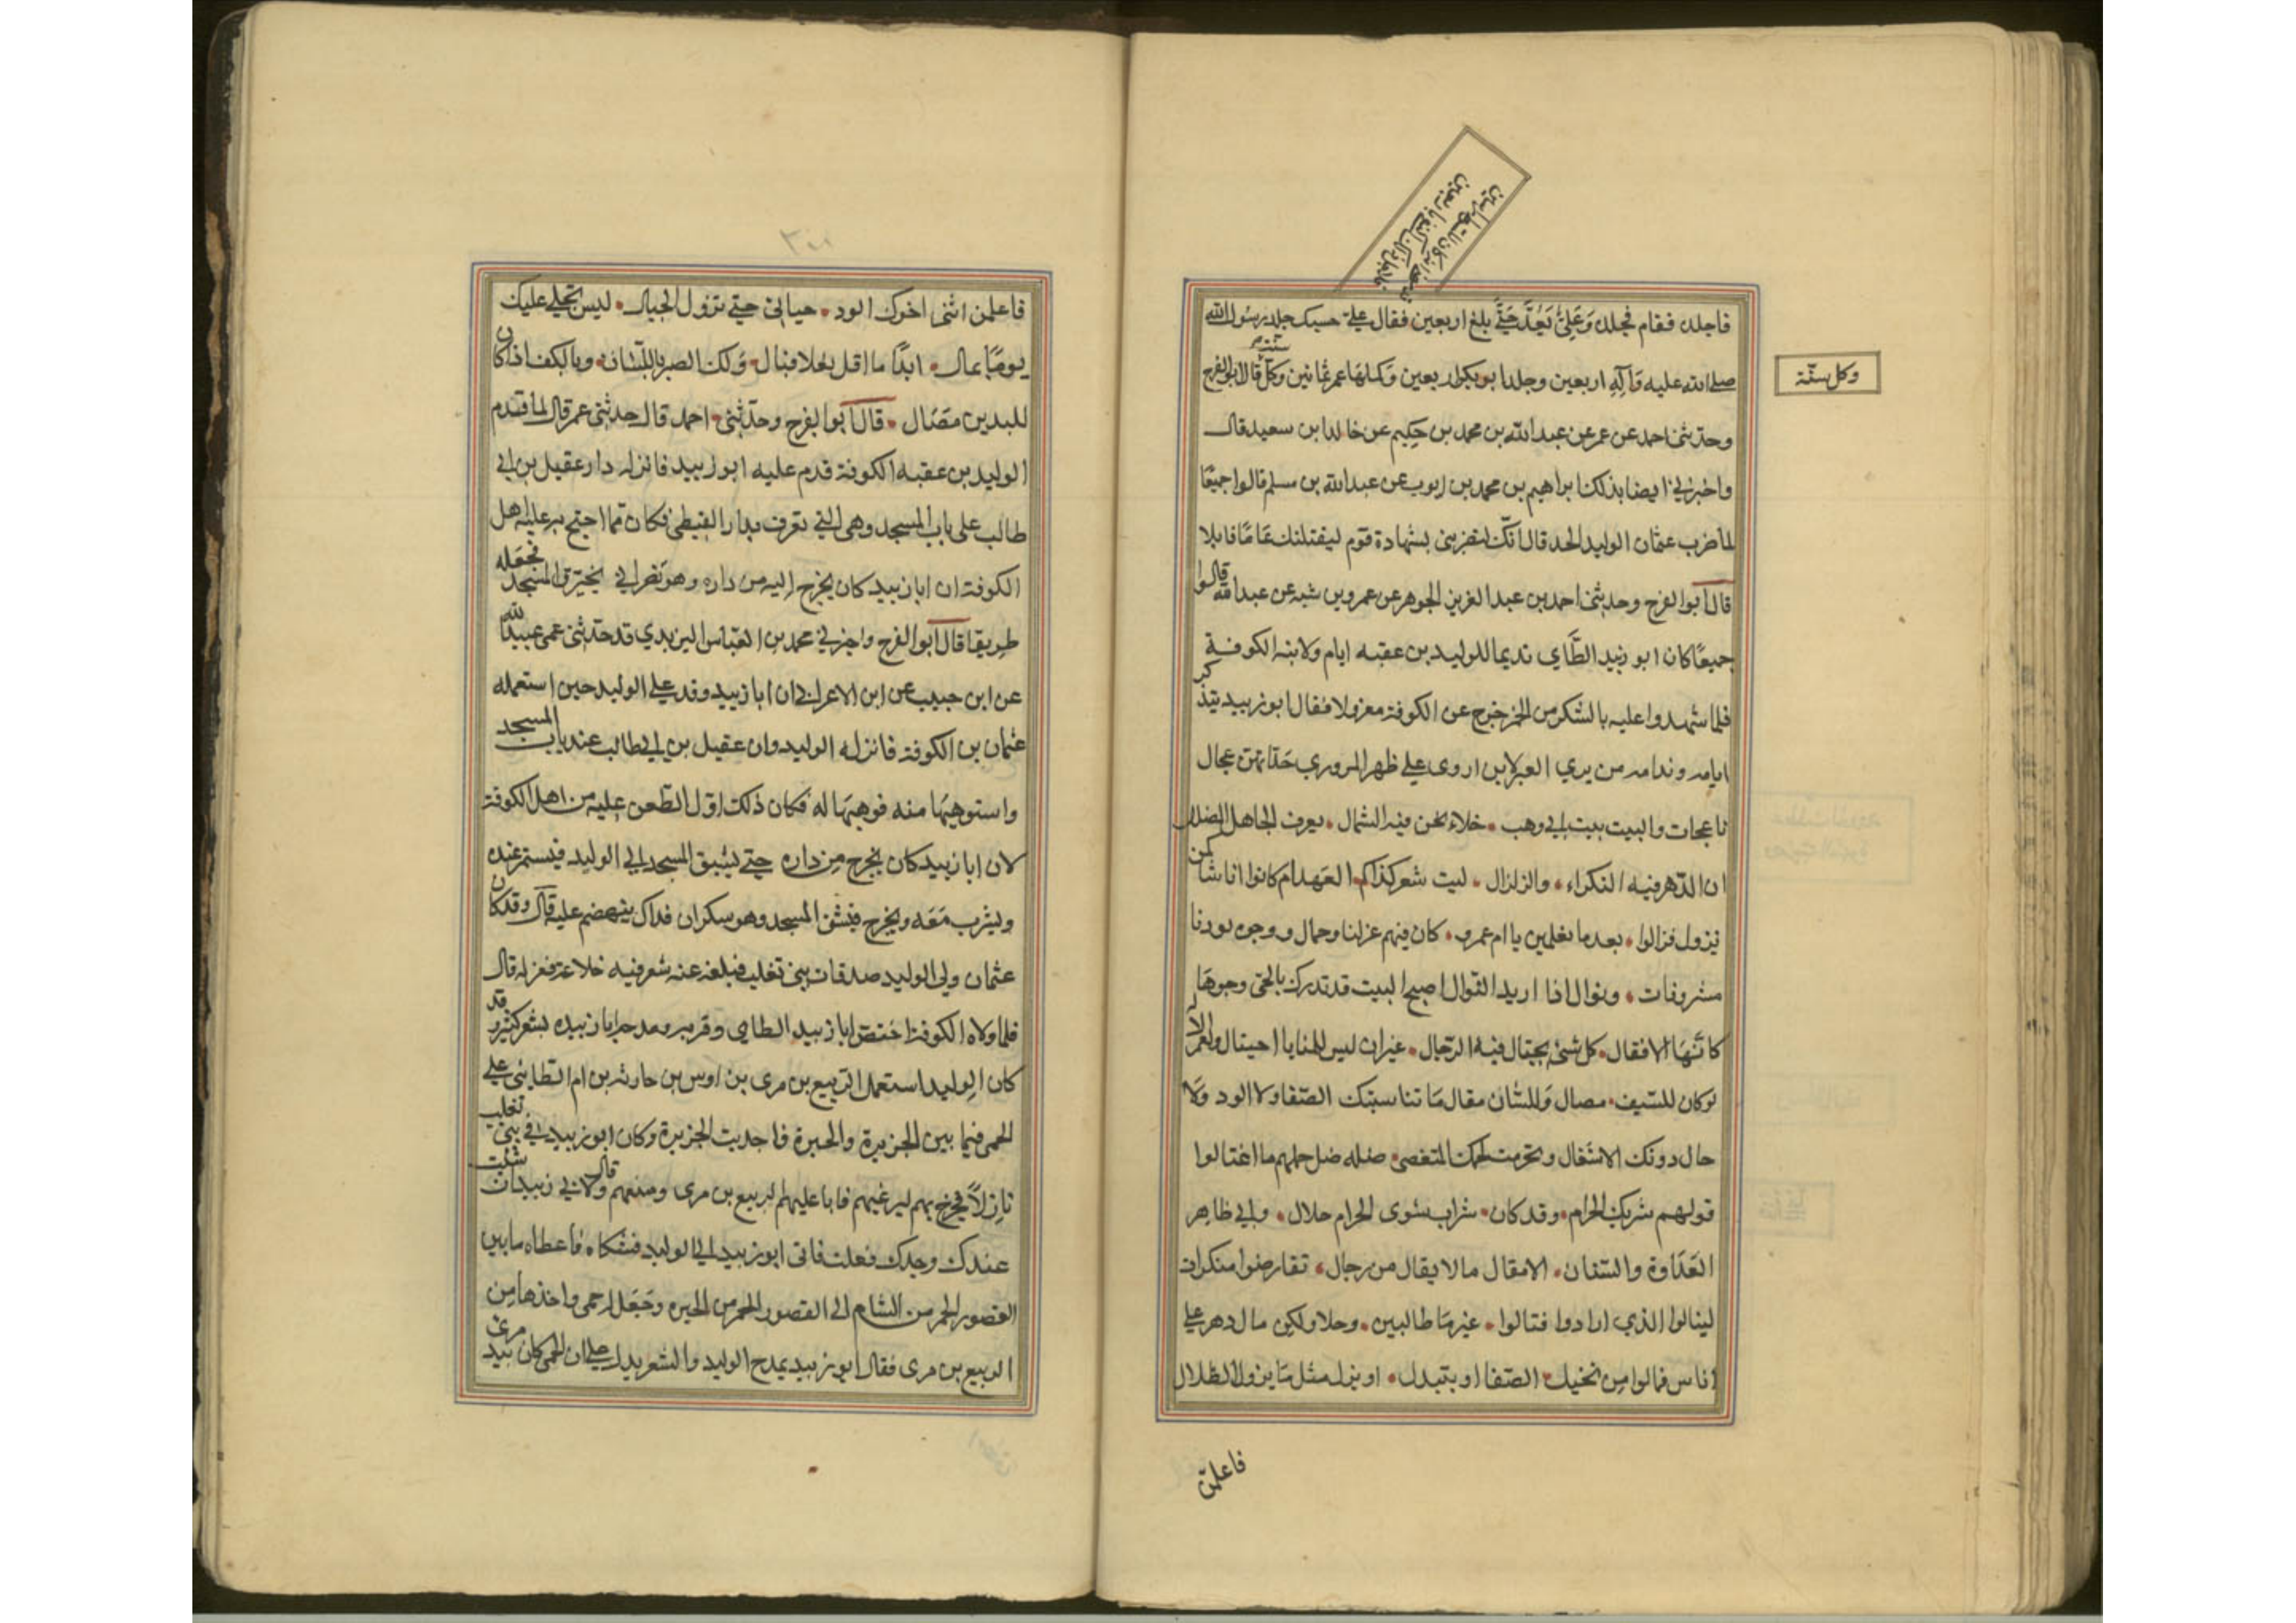 فاجلده فقام فجلده وَعَلِيٌّ يَعُدُّ حَتَّى بلغ اربعين فقال علي حسبك جلد رسول الله
صلى الله عليه وَآلِهِ اربعين وجلد ابو بكر اربعين وَكملهَا عمر ثمانين وكلٌّ سنّة قال ابو الفرج
وكل سنّة
وحدثنى احمد عن عمر عن عبد الله بن محمد بن حكيم عن خالد ابن سعيد قال
واخبرني ايضا بذلك ابراهيم بن محمد بن ايوب عن عبد الله بن مسلم قالوا جميعًا
لما ضرب عثمان الوليد الحد قال انّك لتضربنى بشهادة قوم ليقتلنك عَامًا قابلا
قال ابو الفرج وحدثنى احمد بن عبد العزيز الجوهر عن عمرو بن شبه عن عبد الله قالوا
جميعًا كان ابو زبيد الطَّاي نديما للوليد بن عقبه ايام ولايته الكوفة
فلما شهدوا عليه بالسّكر من الخمر خرج عن الكوفة معزولا فقال ابو زبيد يتذكر
ايامه وندامه من يري العير لابن اروى على ظهر المروري حداتهن عجال
ناعجات والبيت بيت ابي وهب • خلاء تحن فيه الشمال • يعرف الجاهل الضلال
ان الدّهر فيه النكراء • والزلزال • ليت شعر كذاكم العهد ام كانوا اناسًا كمن
يزول فزالوا • بعد ما تعلمين يا ام عمرو • كان فيهم عزلنا وجمال ووجوه بودنا
مشرفات • ونوال اذا اريد النّوال اصبح البيت قد تدرك بالحيّ وجوهَا
كانَّهَا الاقفال • كل شئ يحتال فيه الرّجال • غير ان ليس للمنايا احتيال ولعمر الاله
لوكان للسّيف • مصال وَللسّان مقال مَا تناسيتك الصّفا ولا الود وَلا
حال دونك الاشغال ولحرمت لحمك المتعصى • ضله ضل حلمهم ما اغتالوا
قولهم شربك الحرام • وقد كان • شراب سوى الحرام حلال • وابي ظاهر
العَدَاوة والشنان • الا مقال ما لا يقال من رجال • تقارضوا منكرات
لينالوا الذي ارادوا فنالوا • غير مَا طالبين • وحلا ولكن مال دهر على
اناس فمالوا من يخنك • الصّفا او يتبدل • او يزل مثل مَا يزول الظلال
فاعلمن
فاعلمن اننى اخوك الود • حياتي حتى تزول الجبال • ليس بخلى عليك
يومًا بمال • ابدًا ما اقل نعلا قبال • وَلك النصر باللّسان • وبالكف اذا كان
لليدين مصَال • قال ابو الفرج وحدّثنى • احمد قال حدثنى عمر قال لما قدم
الوليد بن عقبه الكوفة قدم عليه ابو زبيد فانزله دار عقيل بن ابي
طالب على باب المسجد وهى التي تعرف بدار القبطى فكان مما احتج به عليه اهل
الكوفة ان ابا زبيد كان يخرج اليه من داره وهو نصراني يخترق المسجد فجعله
طريقا قال ابو الفرج واخبرني محمد بن العبّاس اليزيدي قد حدّثنى عمى عبيد الله
عن ابن حبيب عن ابن الاعرابي ان ابا زبيد وفد على الوليد حين استعمله
عثمان بن الكوفة فانزله الوليد وان عقيل بن ابي طالب عند باب المسجد
واستوهبهَا منه فوهبهَا له فكان ذلك اوّل الطّعن عليه من اهل الكوفة
لان ابا زبيد كان يخرج من داره حتى يشق المسجد الى الوليد فيسمر عنده
ويشرب مَعَه ويخرج فيشق المسجد وهو سكران فذاك ينهضم عليه قال وقد كان
عثمان ولى الوليد صدقات بنى تغلب فبلغه عنه شعر فيه خلاعة فعزله قال
فلما ولاه الكوفة اختصّ ابا زبيد الطاى وقربه ومدحه ابا زبيده بشعر كثير وقد
كان الوليد استعمل الرّبيع بن مرى بن اوس بن حارثه بن ام الطّايى على
الحمى فيما بين الجزيرة والحيرة فاجدبت الجزيرة وكان ابو زبيد في بنى تغلب
نازِلاً فخرج بهم ليرعيهم فابا عليهم الربيع بن مرى ومنعهم وقال لابي زبيد ان شئت
عندك وجدك فعلت فاتى ابو زبيد الى الوليد فشكاه فاعطاه ما بين
القصور الحمر من الشام الى القصور الحمر من الحيره وَجَعَل له حمى واخذها من
الربيع بن مرى فقال ابو زبيد يمدح الوليد والشعر يدل على ان الحمى كان بيد مرى